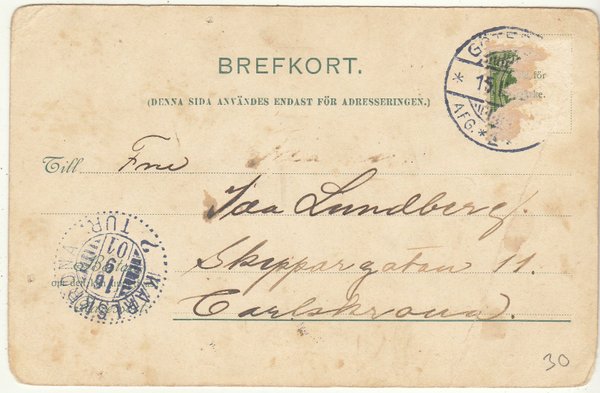 BREFKORT.
(DENNA SIDA ANVÄNDES ENDAST FÖR ADRESSERINGEN.)
för
Till Fru
Ida Lundberg.
Skeppargatan 11.
Carlskrona.
GÖTE
15
AFG. * 2 *
KARLSKRONA
2. TUR.
16 9
01
30